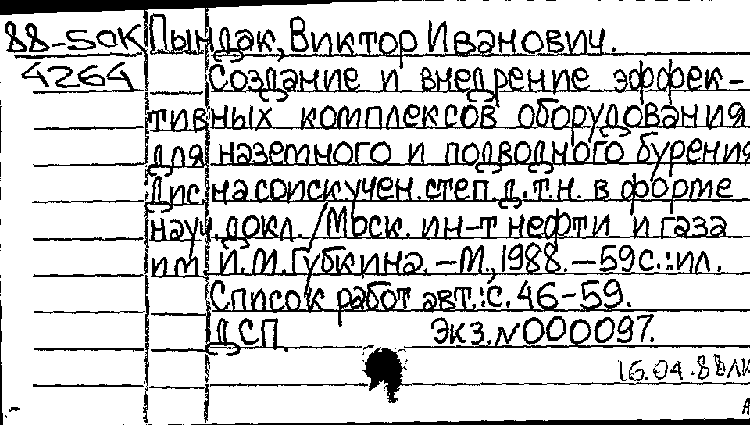 88-50К Пындак, Виктор Иванович.
4264 Создание и внедрение эффек-
тивных комплексов оборудования
для наземного и подводного бурения
Дис на соиск. учен. степ. д.т.н. в форме
науч. докл. / Моск. ин-т нефти и газа
им. И.М. Губкина. – М., 1988. – 59с.: ил.
Список работ авт.: с. 46-59.
ДСП. Экз. N000097.
16.04.88